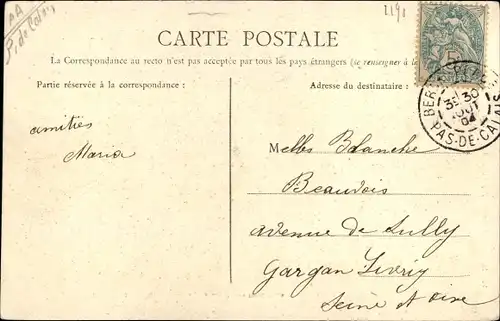 AA
P. de Calais
2191
CARTE POSTALE
La Correspondance au recto n'est pas acceptée par tous les pays étrangers (se renseigner à
Partie réservée à la correspondance :
Adresse du destinataire :
5
3E 30
AOUT
04
PAS-DE-CALAIS
amitiés
Maria
Melles Blanche
Beauvois
avenue de Sully
Gargan Livry
Seine et Oise